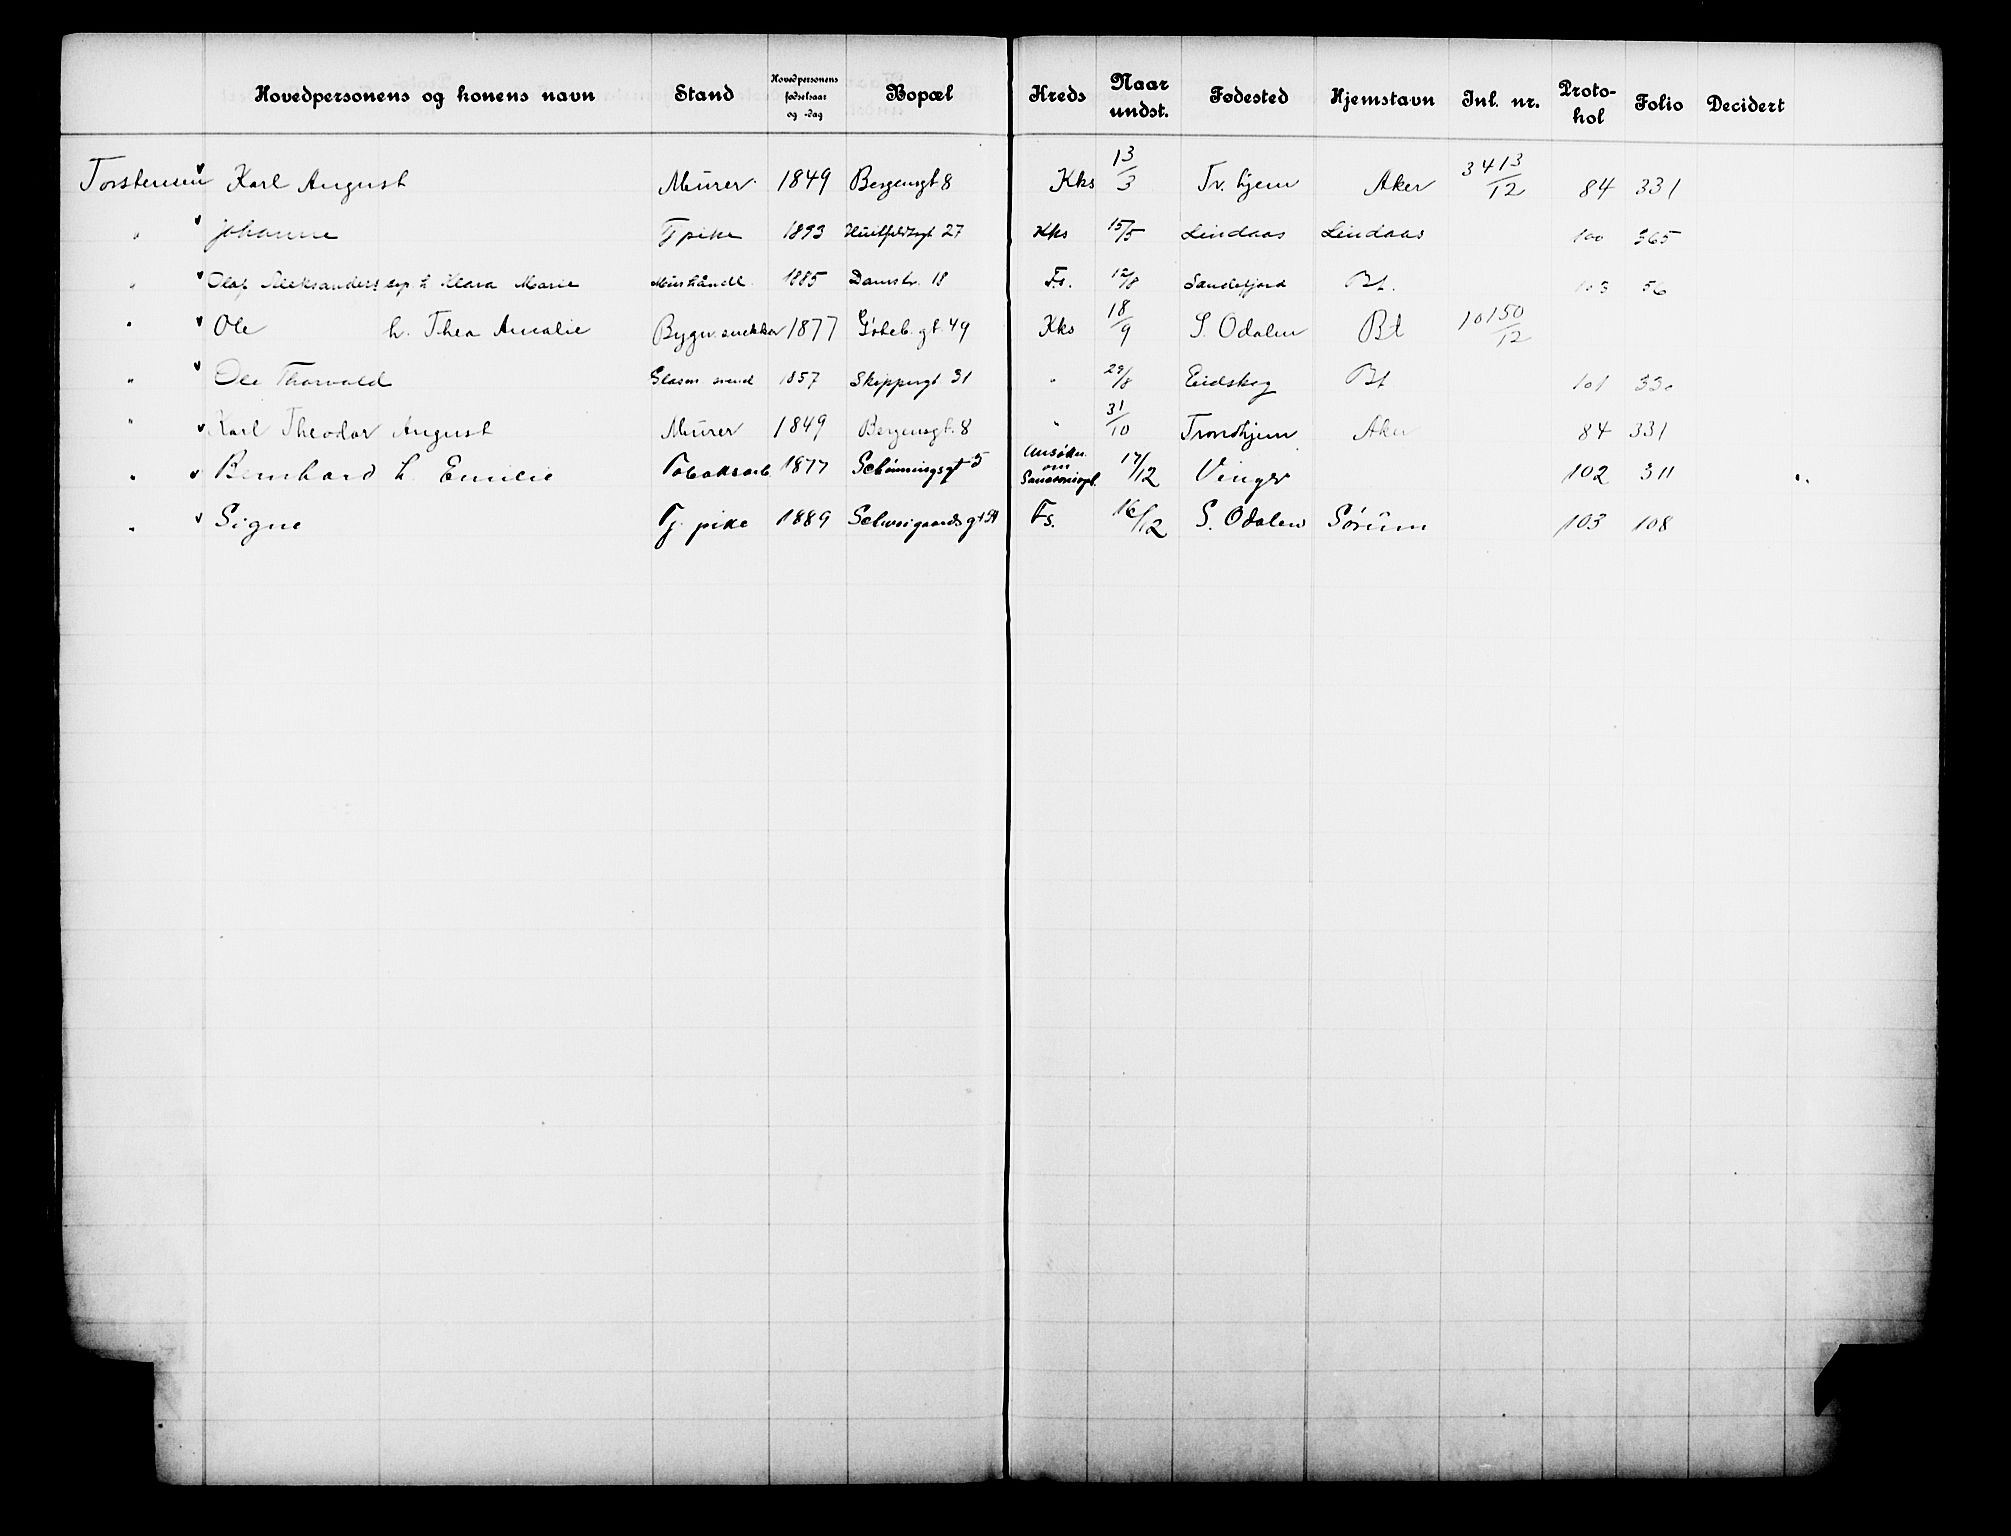 Hovedpersonens og konens navn Stand Hovedpersonens fødselsaar og -dag Bopæl Kreds Naar undst. Fødested Hjemstavn Inl. nr. Protokol Folio Decidert
Torstensen Karl August Murer 1849 Bergensgt 8 Kks 13/3 Tr.hjem Aker 3413/12 84 331
" Johanne Tj pike 1893 Huitfeldtsgt 27 Kks 15/5 Lindaas Lindaas 100 365
" Olaf Aleksander sep. h Klara Marie 1885 Damstr. 18 Fs. 12/8 Sandefjord Bt. 103 56
" Ole h. Thea Amalie Bygn.snekker 1877 Göteb.gt. 49 Kks 18/9 S. Odalen Bt 10150/12
" Ole Thorvald Glasm svend 1857 Skippergt 31 " 29/8 Eidskog Bt 101 330
" Karl Theodor August Murer 1849 Bergensgt. 8 " 31/10 Trondhjem Aker 84 331
" Bernhard h. Emilie Tobaksarb. 1877 Schønningsgt 5 Ansøkn. om 17/12 Vinger 102 311
" Signe Tj. pike 1889 Schweigaardsgt Fs. 16/12 S. Odalen Sørum 103 108